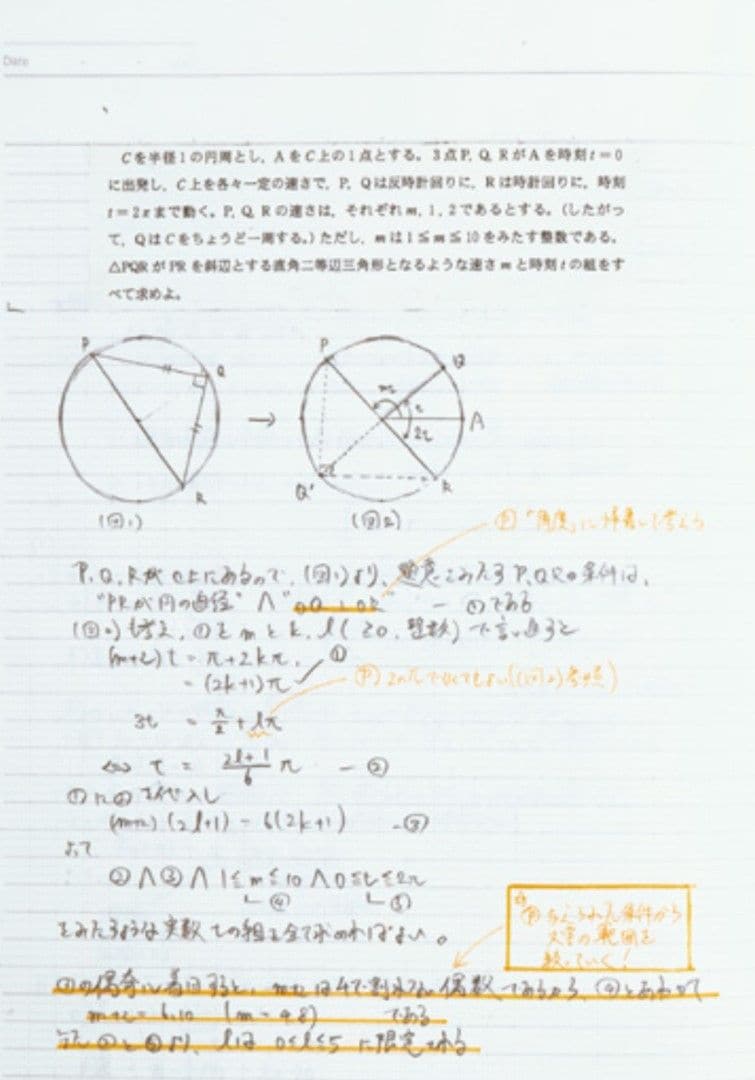 Date
Cを半径1の円周とし,AをC上の1点とする。3点P,Q,RがAを時刻t=0
に出発し,C上を各々一定の速さで,P,Qは反時計回りに,Rは時計回りに,時刻
t=2πまで動く。P,Q,Rの速さは,それぞれm,1,2であるとする。(したがっ
て,QはCをちょうど一周する。)ただし,mは1≦m≦10をみたす整数である。
△PQRがPRを斜辺とする直角二等辺三角形となるような速さmと時刻tの組をす
べて求めよ。
P
Q
R
(図1)
→
P
Q
mt
t
A
2t
Q'
R
(図2)
「角度」に帰着して考える
P,Q,RがC上にあるので,(図1)より,題意をみたすP,Q,Rの条件は,
"PRが円の直径" ∧ "OQ⊥OR" ― ⑦である
(図2)も考え,⑦をmとk,l(≧0,整数)で言い直すと
(m+2)t = π+2kπ,
= (2k+1)π ①
2nπでなくてもよい((図2)参照)
3t = π/2 + lπ
⇔ t = 2l+1/6 π ― ②
①に②を代入し
(m+2)(2l+1) = 6(2k+1) ―③
よって
②∧③∧1≦m≦10∧0≦t≦2π
④ ⑤
をみたすような実数tの組を全て求めればよい。
与えられた条件から
文字の範囲を
絞っていく!
③の偶奇に着目すると,m+2は4で割れない偶数であるから,④とあわせて
m+2=6,10 (m=4,8) である
また②と⑤より,lは0≦l≦5に限定される